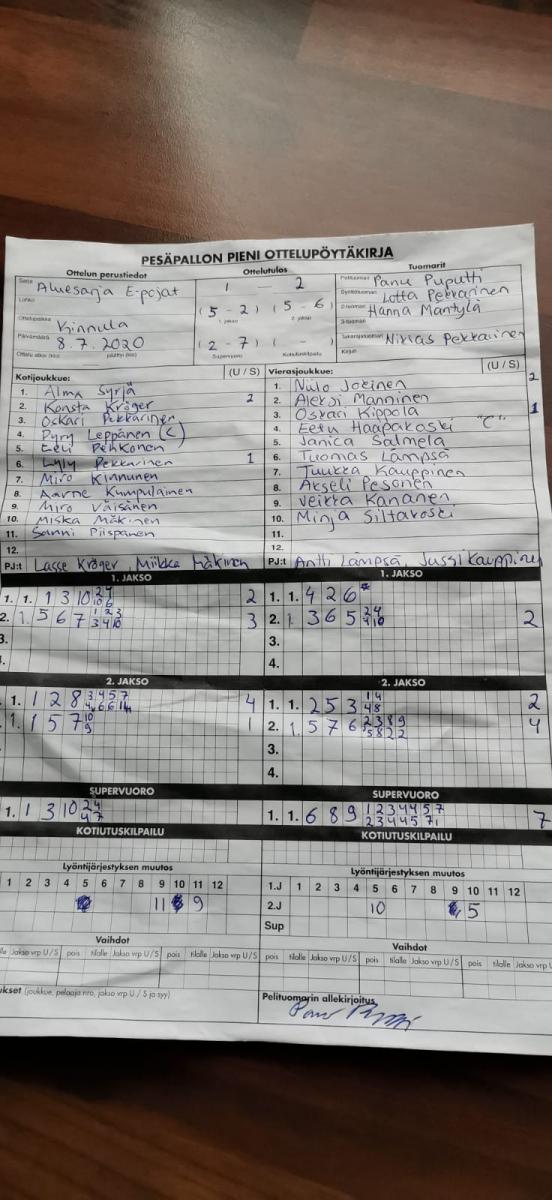 PESÄPALLON PIENI OTTELUPÖYTÄKIRJA
Ottelun perustiedot Ottelutulos Tuomarit
Sarja Aluesarja E-pojat 1 - 2 Pelituomari Panu Puputti
Lohko (5 - 2) (5 - 6) Syöttötuomari Lotta Pekkarinen
1. jakso 2. jakso 2-tuomari Hanna Mäntylä
Ottelupaikka Kinnula 3-tuomari
Päivämäärä 8.7.2020 (2 - 7) ( - ) Takarajatuomari Niklas Pekkarinen
Ottelu alkoi (klo) päättyi (klo) Supervuoro Kotiutuskilpailu Kirjuri
Kotijoukkue: (U / S) Vierasjoukkue: (U / S)
1. Alma Syrjä 2 1. Niilo Jokinen 2
2. Konsta Kröger 2. Aleksi Manninen
3. Oskari Pekkarinen 3. Oskari Kippola 1
4. Pyry Leppänen (C) 4. Eetu Haapakoski "C"
5. Eeli Pehkonen 5. Janica Salmela
6. Lyly Pekkarinen 1 6. Tuomas Lämpsä
7. Miro Kinnunen 7. Tuukka Kauppinen
8. Aarne Kumpulainen 8. Akseli Pesonen
9. Miro Väisänen 9. Veikka Kananen
10. Miska Mäkinen 10. Minja Siltakoski
11. Sanni Piispanen 11.
12. 12.
PJ:t Lasse Kröger, Miikka Mäkinen PJ:t Antti Lämpsä, Jussi Kauppinen
1. JAKSO 1. JAKSO
1. 1. 1 3 10 2 4 2 1. 1. 4 2 6
10 6
2. 1. 5 6 7 1 2 3 3 2. 1. 3 6 5 2 4 2
3 4 10 4 10
3. 3.
4.
2. JAKSO 2. JAKSO
1. 1 2 8 3 4 5 7 4 1. 1. 2 5 3 1 4 2
4 6 6 11 4 8
1. 1 5 7 10 1 2. 1. 5 7 6 2 3 8 9 4
9 5 8 2 2
3.
4.
SUPERVUORO SUPERVUORO
1. 1 3 10 2 4 1. 1. 6 8 9 1 2 3 4 4 5 7 7
4 7 2 3 4 4 5 7 1
KOTIUTUSKILPAILU KOTIUTUSKILPAILU
Lyöntijärjestyksen muutos Lyöntijärjestyksen muutos
1 2 3 4 5 6 7 8 9 10 11 12 1.J 1 2 3 4 5 6 7 8 9 10 11 12
11 9 2.J 10 5
Sup
Vaihdot Vaihdot
tilalle Jakso vrp U / S pois tilalle Jakso vrp U / S pois tilalle Jakso vrp U / S pois tilalle Jakso vrp U / S pois tilalle Jakso vrp U / S pois tilalle Jakso vrp U
(joukkue, pelaaja nro, jakso vrp U / S ja syy) Pelituomarin allekirjoitus